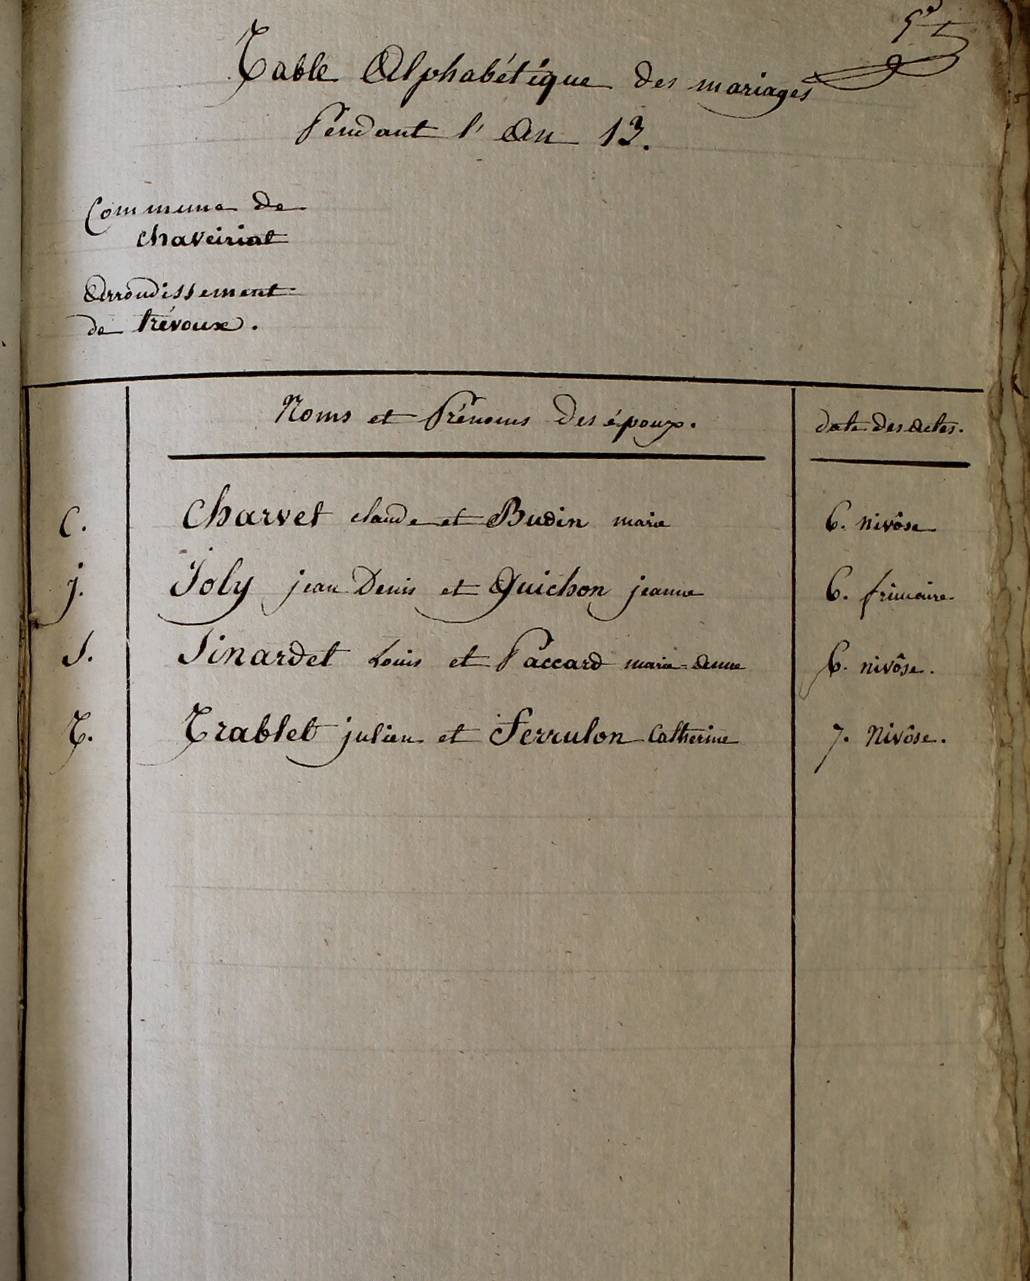 Table Alphabétique des mariages
Pendant l'An 13.
Commune de
chaveiriat
Arrondissement
de trévoux.
Noms et Prénoms des époux. date des actes.
C. Charvet claude et Budin marie 6. nivôse
j. Joly jean Denis et Guichon jeanne 6. frimaire.
S. Sinardet Louis et Paccard marie-anne 6. nivôse.
T. Trablet julien et Ferrulon Catherine 7. Nivôse.